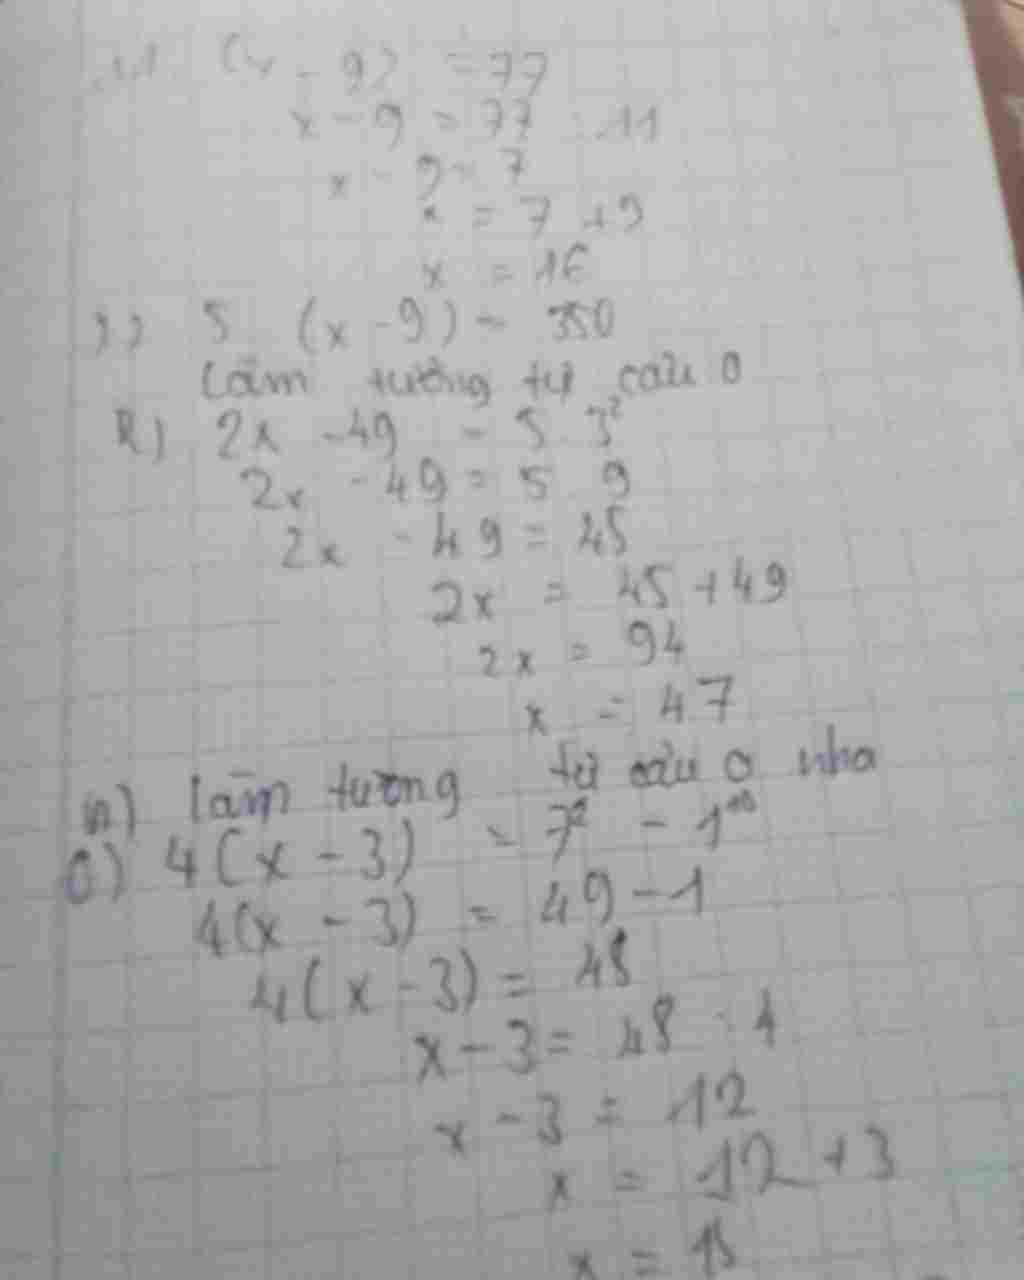 11 (x - 9) = 77
x - 9 = 77 : 11
x - 9 = 7
x = 7 + 9
x = 16
5 (x - 9) = 350
Làm tương tự câu o
k) 2x - 49 = 5 . 3²
2x - 49 = 5 9
2x - 49 = 45
2x = 45 + 49
2x = 94
x = 47
n) làm tương tự câu o nha
o) 4(x - 3) = 7² - 1¹⁰
4(x - 3) = 49 - 1
4(x - 3) = 48
x - 3 = 48 : 4
x - 3 = 12
x = 12 + 3
x = 15